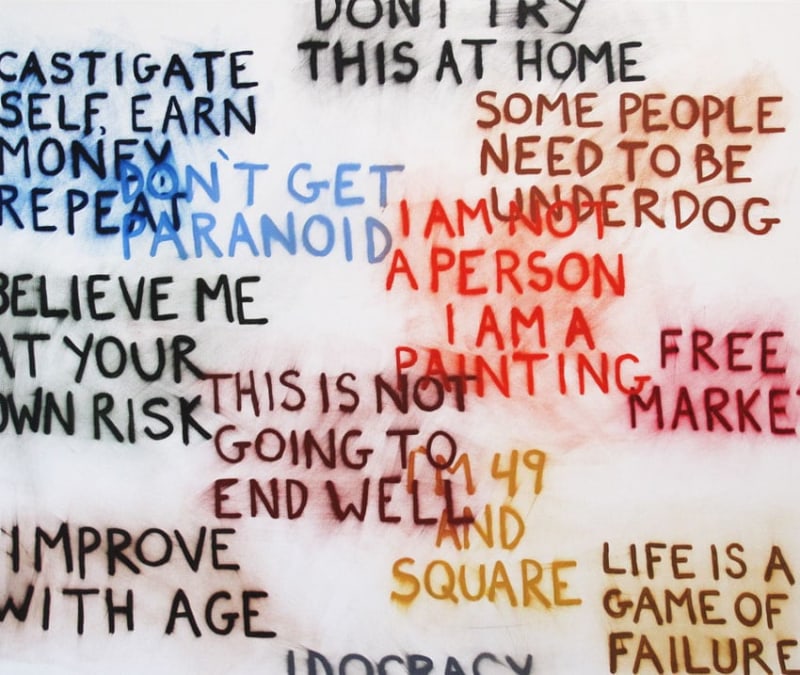 DON'T TRY
THIS AT HOME
CASTIGATE
SELF, EARN
MONEY
REPEAT
SOME PEOPLE
NEED TO BE
UNDERDOG
DON'T GET
PARANOID
I AM NOT
A PERSON
I AM A
PAINTING
BELIEVE ME
AT YOUR
OWN RISK
FREE
MARKET
THIS IS NOT
GOING TO
END WELL
I'M 49
AND
SQUARE
IMPROVE
WITH AGE
LIFE IS A
GAME OF
FAILURE
IDOCRACY